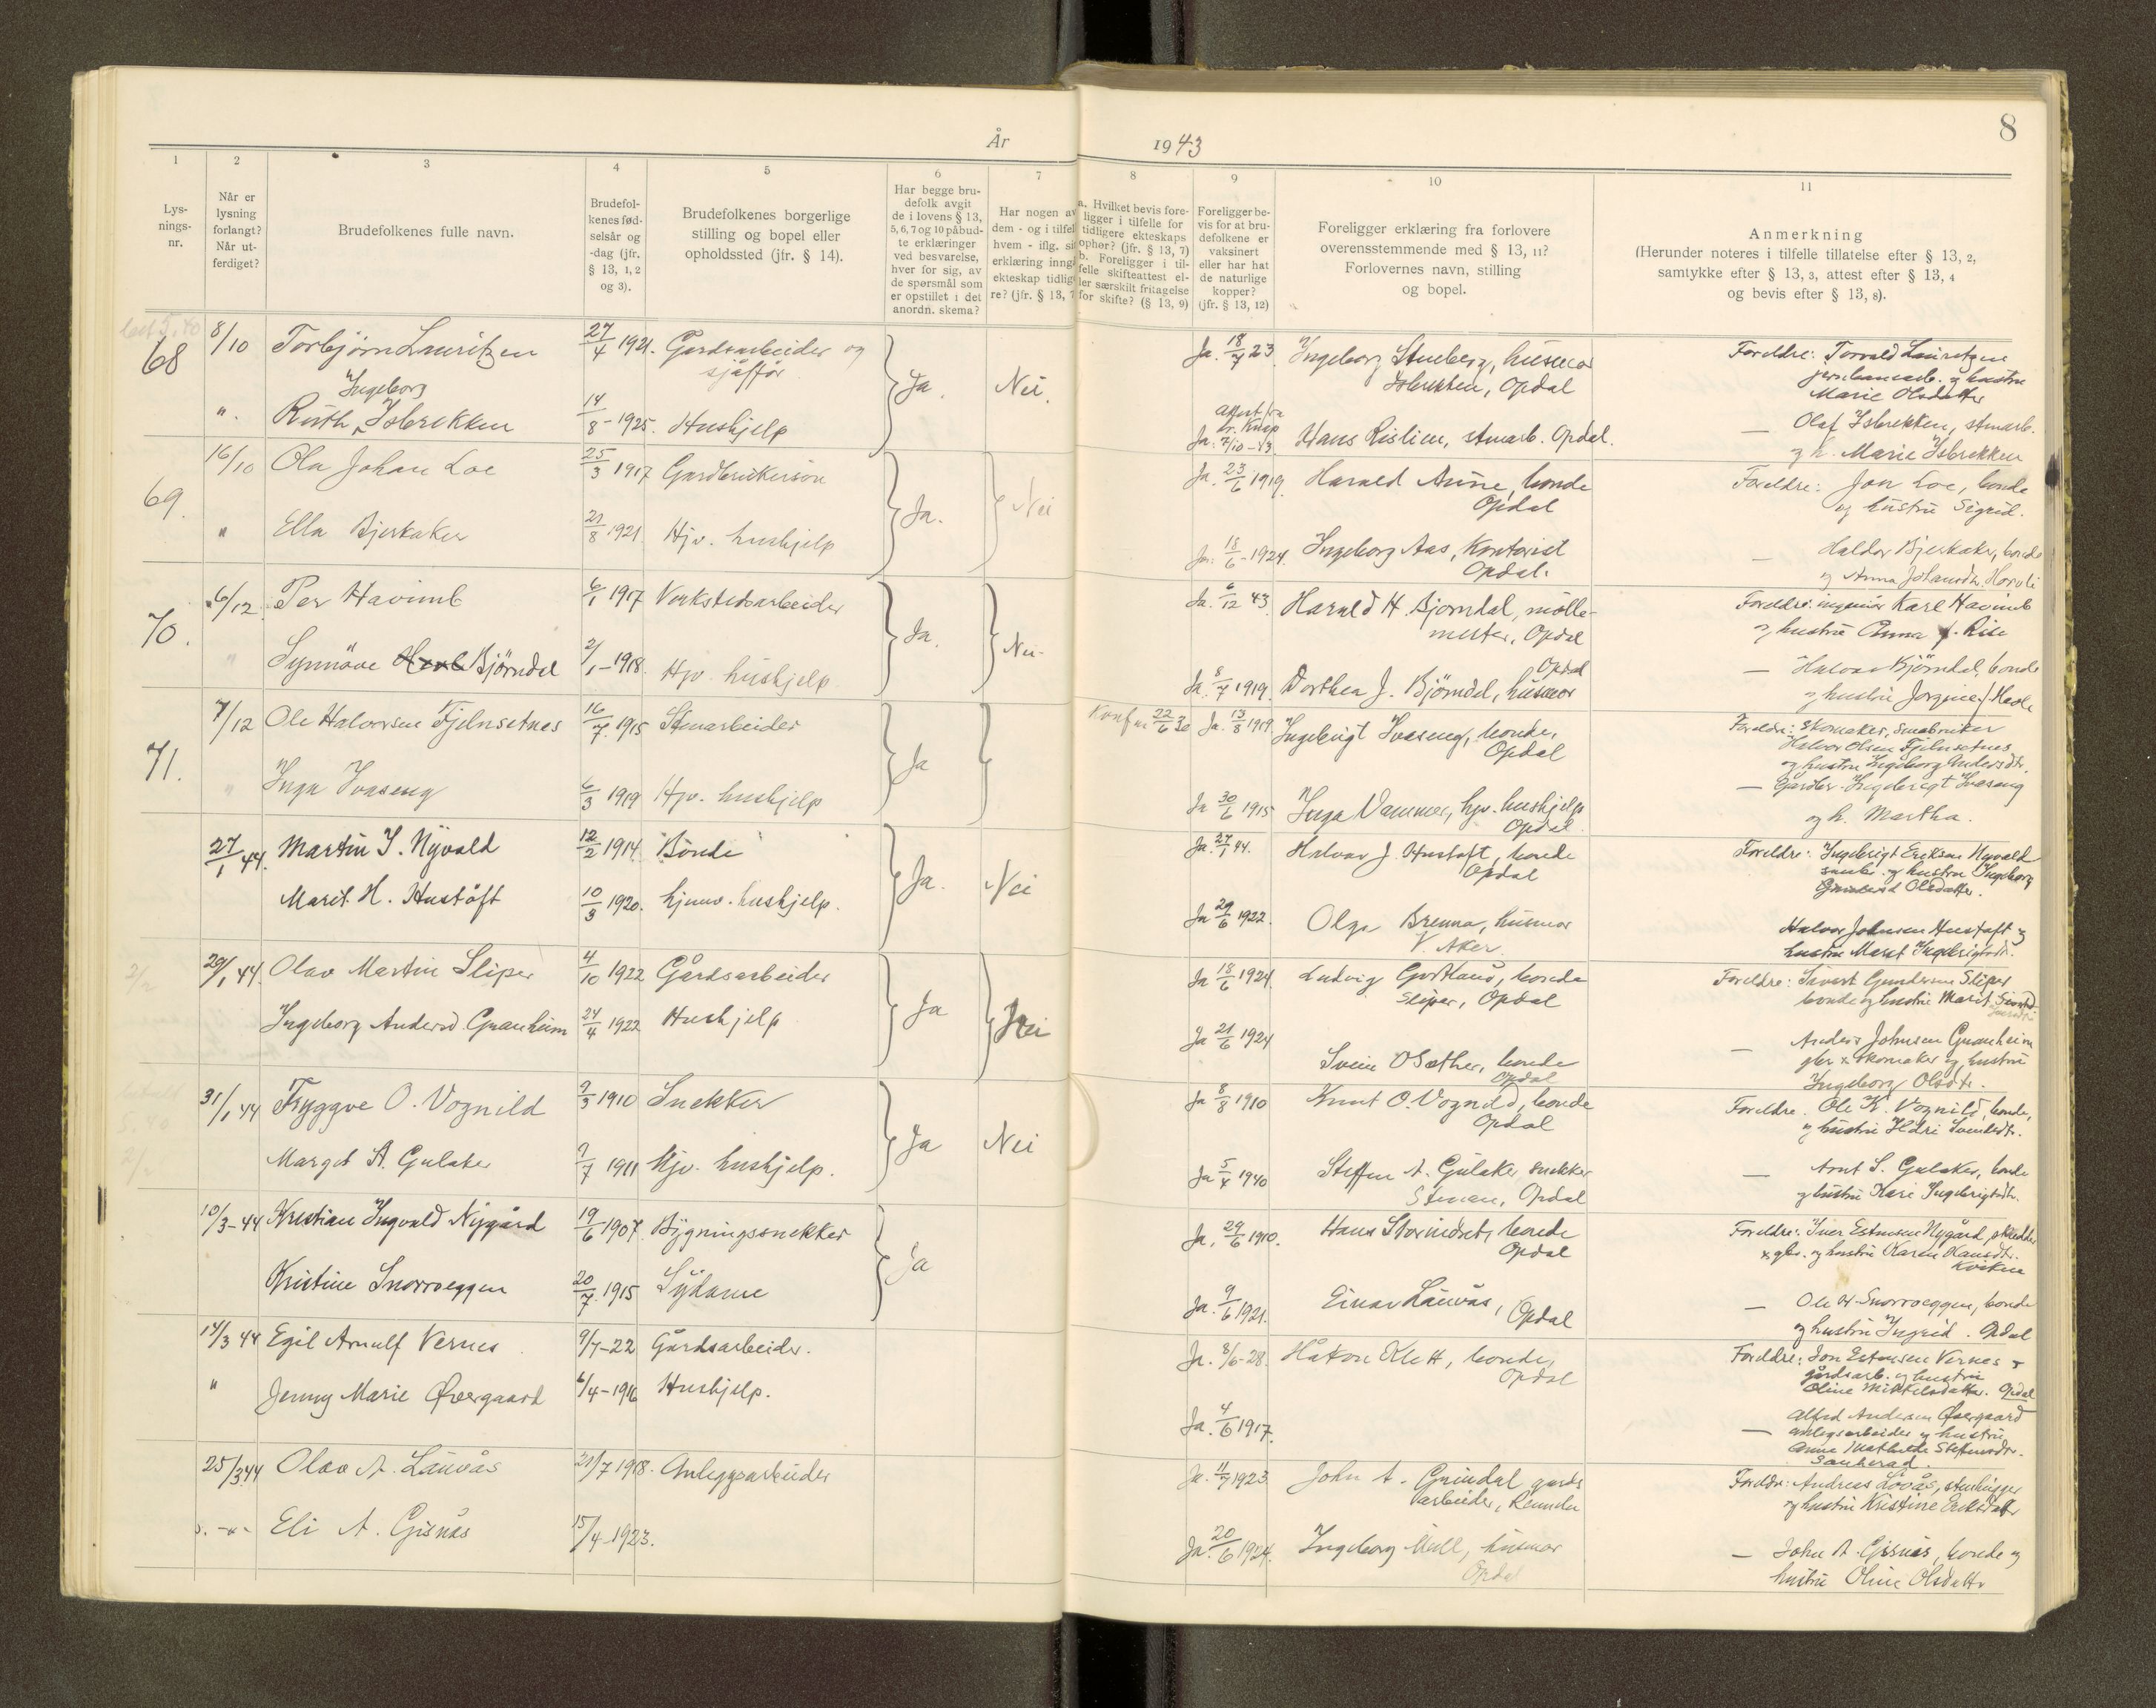 År 1943
8
1 2 3 4 5 6 7 8 9 10 11
Lys-
nings-
nr.
Når er
lysning
forlangt?
Når ut-
ferdiget?
Brudefolkenes fulle navn.
Brudefol-
kenes fød-
selsår og
-dag (jfr.
§ 13, 1, 2
og 3).
Brudefolkenes borgerlige
stilling og bopel eller
opholdssted (jfr. § 14).
Har begge bru-
defolk avgit
de i lovens § 13,
5, 6, 7 og 10 påbud-
te erklæringer
ved besvarelse,
hver for sig, av
de spørsmål som
er opstillet i det
anordn. skema?
Har nogen av
dem - og i tilfel
hvem - iflg. si
erklæring inngå
ekteskap tidlig
re? (jfr. § 13, 7
a. Hvilket bevis fore-
ligger i tilfelle for
tidligere ekteskaps
ophør? (jfr. § 13, 7)
b. Foreligger i til-
felle skifteattest el-
ler særskilt fritagelse
for skifte? (§ 13, 9)
Foreligger be-
vis for at bru-
defolkene er
vaksinert
eller har hat
de naturlige
kopper?
(jfr. § 13, 12)
Foreligger erklæring fra forlovere
overensstemmende med § 13, 11?
Forlovernes navn, stilling
og bopel.
Anmerkning
(Herunder noteres i tilfelle tillatelse efter § 13, 2,
samtykke efter § 13, 3, attest efter § 13, 4
og bevis efter § 13, 8).
68 8/10 Torbjørn Lauritzen 27/4 1921. Gardsarbeider og
sjåfför
Ja. Nei.
Ja. 18/7 23 Ingeborg Stueberg, husmor
Isbrekken, Opdal
Foreldre: Torvald Lauritzen
jernbanearb. og hustru
Marie Olsdatter
" Ruth Ingeborg Isbrekken 14/8-1925. Hushjelp
Attest fra
dr. Knap
Ja. 7/10-43 Hans Rislien, stenarb. Opdal.
— Olaf Isbrekken, stenarb.
og h. Marie Isbrekken
69. 16/10 Ola Johan Loe 25/3 1917 Gardbrukersön
Ja. Nei
Ja. 23/6 1919. Harald Aune, bonde
Opdal
Foreldre: Jon Loe, bonde
og hustru Sigrid.
" Ella Bjerkaker 21/8 1921. Hjv. hushjelp
Ja. 18/6-1924. Ingeborg Aas, Kontorist
Opdal.
— Haldor Bjerkaker, bonde
og Anna Johansdtr. Horvli
70. 6/12 Per Havimb 6/1 1917 Verkstedsarbeider
Ja. Nei-
Ja. 6/12 43 Harald H. Bjørndal, mölle-
mester, Opdal
Foreldre: ingeniør Karl Havimb
og hustru Anna f. Rise
" Synnöve Björndal 2/1-1918. Hjv. hushjelp
Ja 8/7 1919. Dorthea J. Björndal, husmor
Opdal
— Halvor Björndal, bonde
og hustru Jorgine f. Hesle
71. 7/12 Ole Halvorsen Fjelnsetnes 16/7 1915 Stenarbeider
Ja
Konf nr 22/6 30 Ja. 13/8 1919 Ingebrigt Ivaseng, bonde,
Opdal
Foreldre: Skomaker, småbruker
Halvor Olsen Fjelnsetnes
og hustru Ingeborg Andersdtr.
" Inga Ivaseng 6/3 1919 Hjv. hushjelp
Ja 30/6 1915 Inga Vammer, hjv. hushjelp
Opdal.
— Gårdbr. Ingebrigt Ivaseng
og h. Martha.
27/1 44. Martin I. Nyvold 12/2 1914. Bonde
Ja. Nei
Ja. 27/1 44. Halvor J. Hustøft, bonde
Opdal
Foreldre: Ingebrigt Eriksen Nyvold
småbr. og hustru Ingeborg
Olsdatter.
Marit H. Hustöft 10/3 1920. hjemv. hushjelp.
Ja 29/6 1922. Olga Brenna, husmor
V. Aker
Halvor Johnsen Hustøft og
hustru Marit Ingebrigtsdtr.
29/1 44. Olav Martin Sliper 4/10 1922 Gårdsarbeider
Ja Nei
Ja 18/6 1924. Ludvig Gorsetaun, bonde
Sliper, Opdal
Foreldre: Sivert Gundersen Sliper
bonde og hustru Marit
Ingeborg Andersd. Granheim 24/4 1922 Hushjelp
Ja 21/6 1924
Svein O Sæther, bonde
Opdal
— Anders Johnsen Granheim
gbr. & skomaker og hustru
Ingeborg Olsdtr.
31/1 44 Tryggve O. Vognild 9/3 1910 Snekker
Ja Nei
Ja 8/8 1910 Knut O. Vognild, bonde
Opdal
Foreldre. Ole K. Vognild, bonde,
og hustru Ildri
Margit A. Gulaker 9/7 1911 Hjv. hushjelp.
Ja 5/4 1940 Steffen A. Gulaker snekker
Stenan, Opdal
— Arnt S. Gulaker, bonde
og hustru Kari Ingebrigtsdtr.
10/3-44 Kristian Ingvald Nygård 19/6 1907 Bygningssnekker
Ja
Ja. 29/6 1910. Hans Storindset, bonde
Opdal
Foreldre: Iver Estensen Nygård, skredder
& gbr. og hustru Karen Hansdtr.
Kristine Snorroeggen 20/7 1915 Sydame
Ja. 9/6 1921. Einar Lauvås, Opdal
— Ole H. Snorroeggen, bonde
og hustru Ingrid. Opdal
14/3 44 Egil Arnulf Vernes 9/7-22 Gårdsarbeider.
Ja. 8/6-28. Håkon Klett, bonde,
Opdal
Foreldre: Jon Estensen Vernes
gårdsarb. og hustru
Oline Mikkelsdatter. Opdal
" Jenny Marie Øvergaard 6/4-1916 Hushjelp.
Ja. 4/6 1917.
— Alfred Andersen Øvergaard
anlegsarbeider og hustru
Anna Mathilde Steffensdtr.
Sauherad.
25/3 44 Olav A. Lauvås 21/7 1918. Anleggsarbeider
Ja. 11/7 1923. John A. Grindal gards
arbeider, Rennebu
Foreldre: Andreas Lövås, stenhugger
og hustru Kristine Eriksdatter
" Eli A. Gisnås 15/4-1923.
Ja. 20/6 1924. Ingeborg Mell, husmor
Opdal
— John A. Gisnås, bonde og
hustru Oline Olsdatter